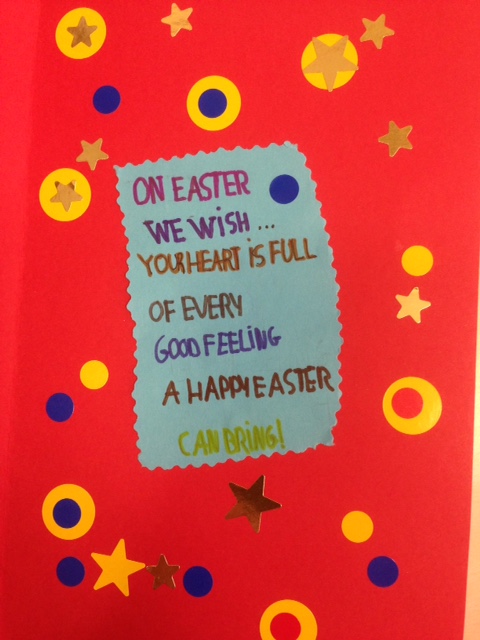 ON EASTER
WE WISH ...
YOUR HEART IS FULL
OF EVERY
GOOD FEELING
A HAPPY EASTER
CAN BRING!